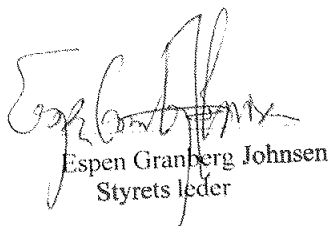 Espen Granberg Johnsen
Styrets leder